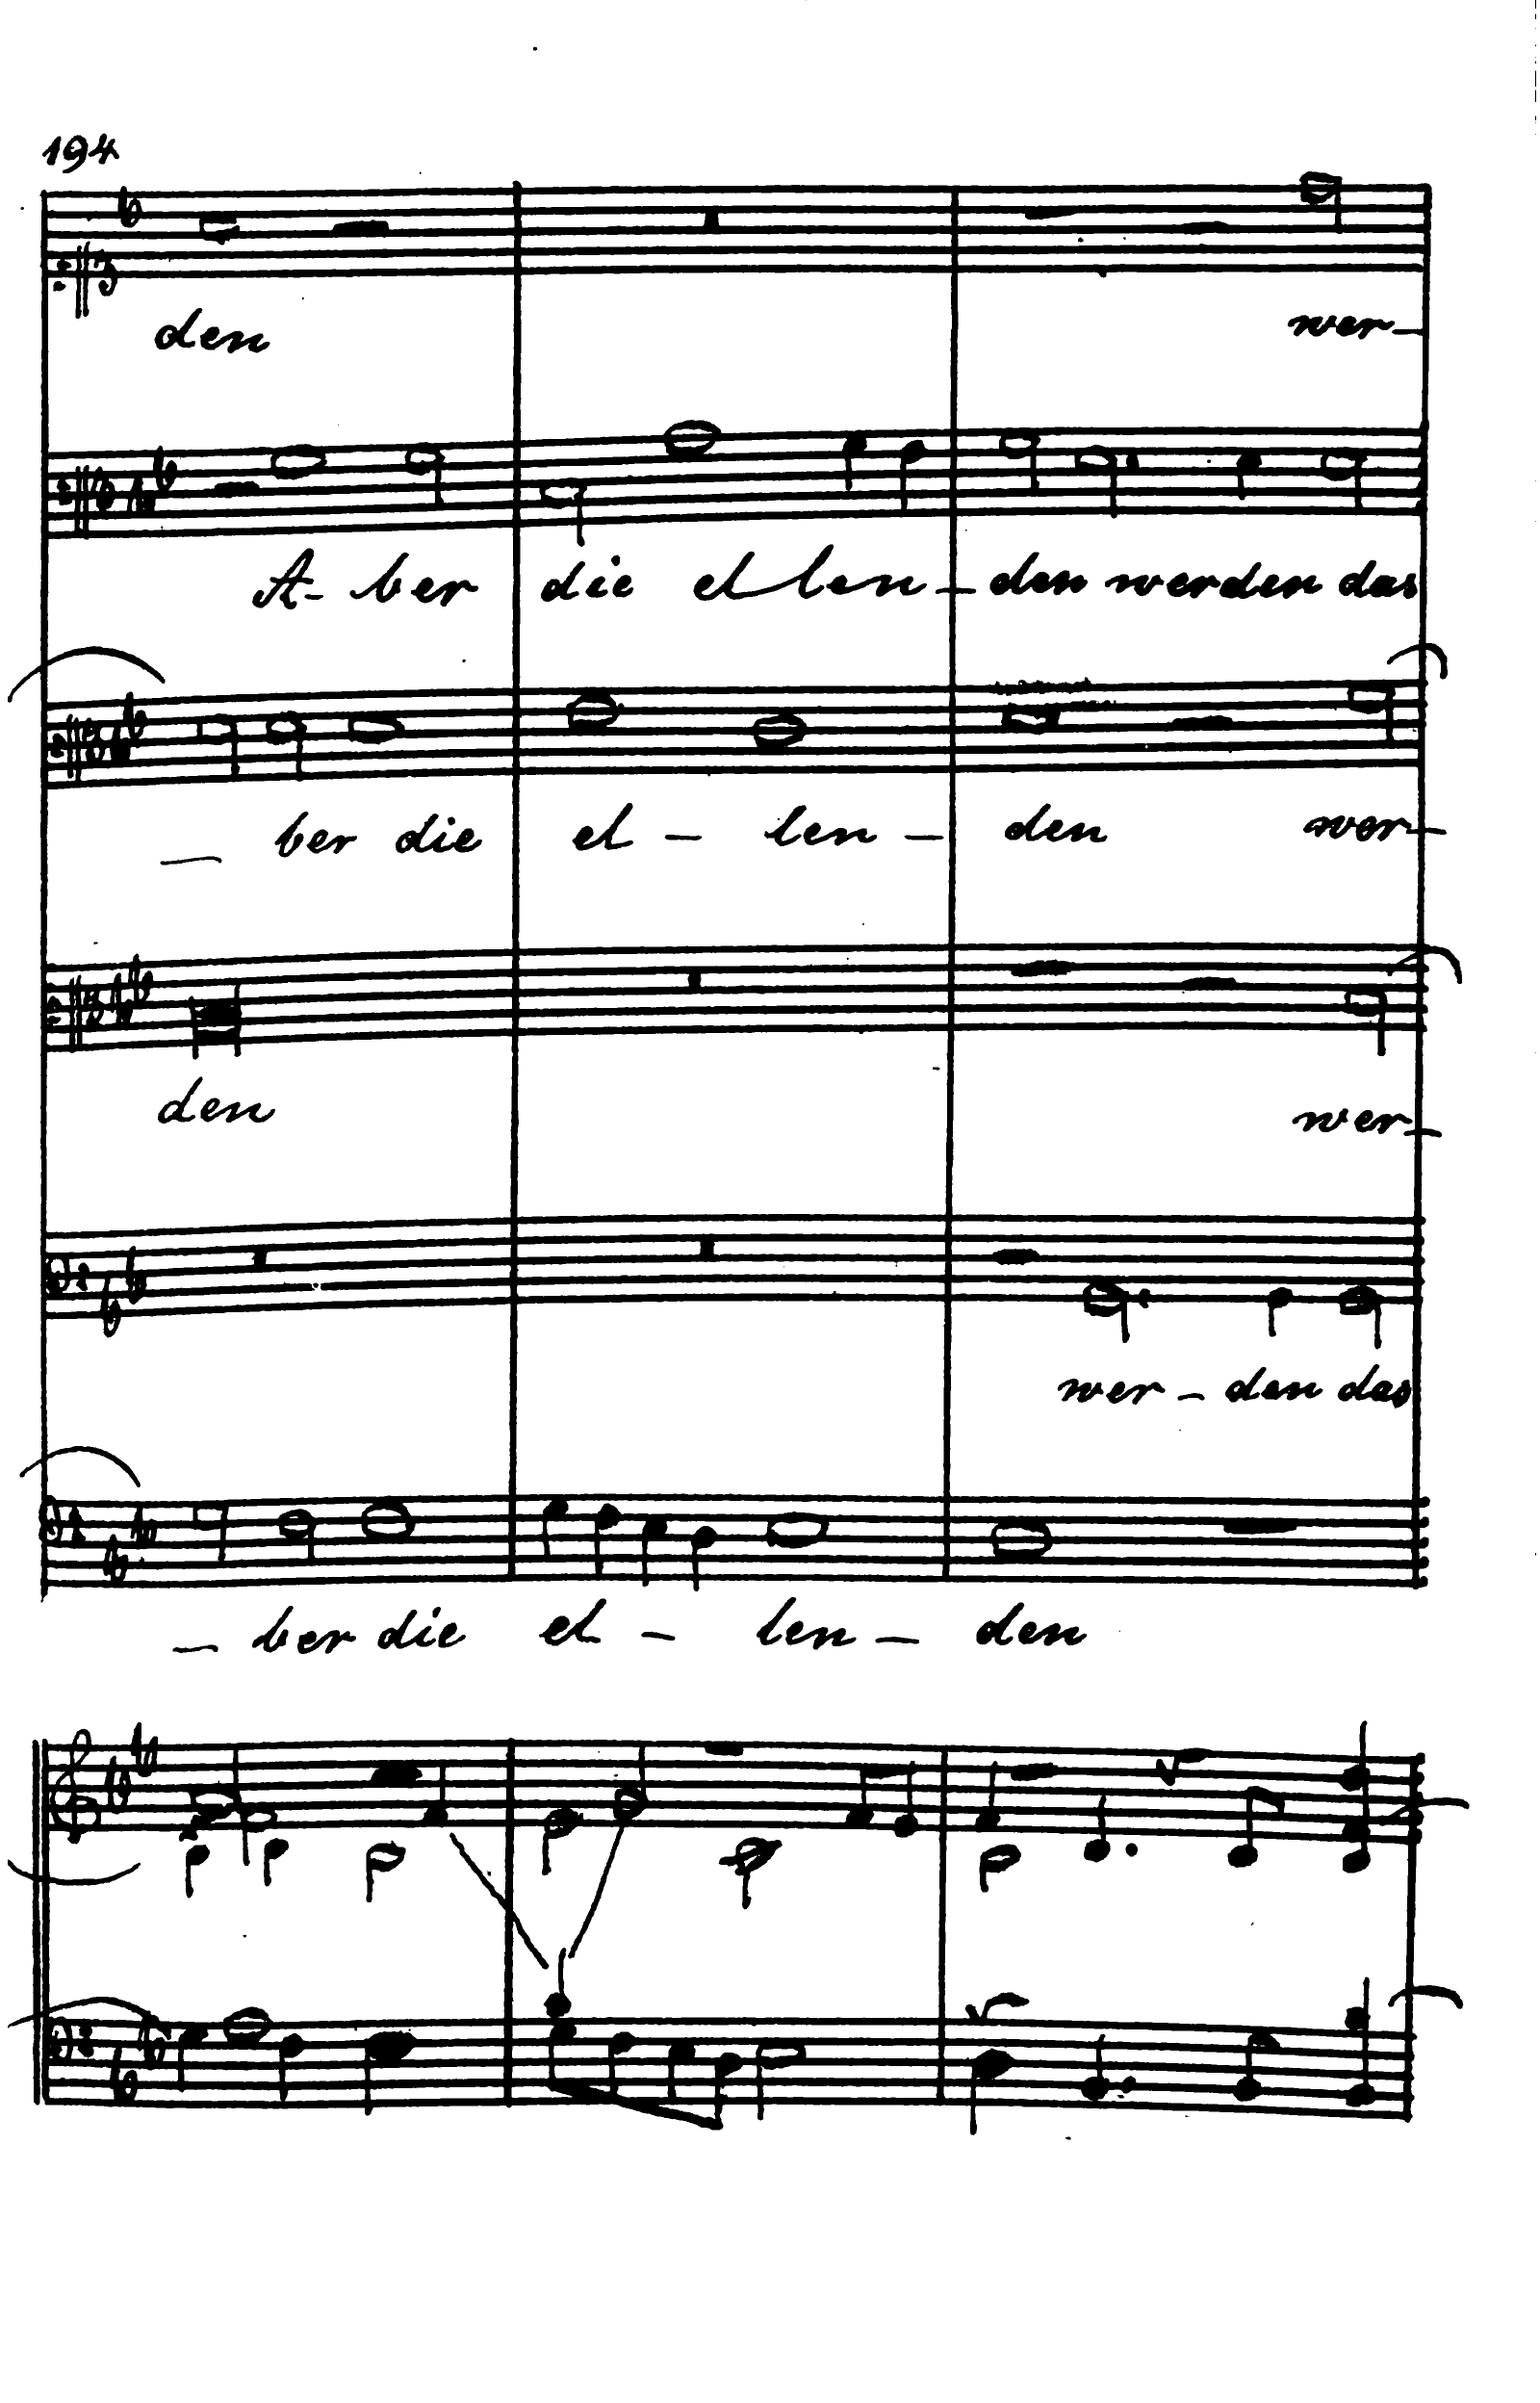 194
den wer-
A- ber die el len - den werden das
- ber die el - len - den wer-
den wer-
wer - den das
- ber die el - len - den